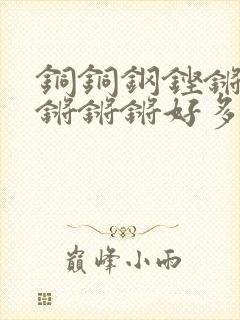 銅銅鋼鏗鏘
鏘鏘鏘好多
巔峰小雨